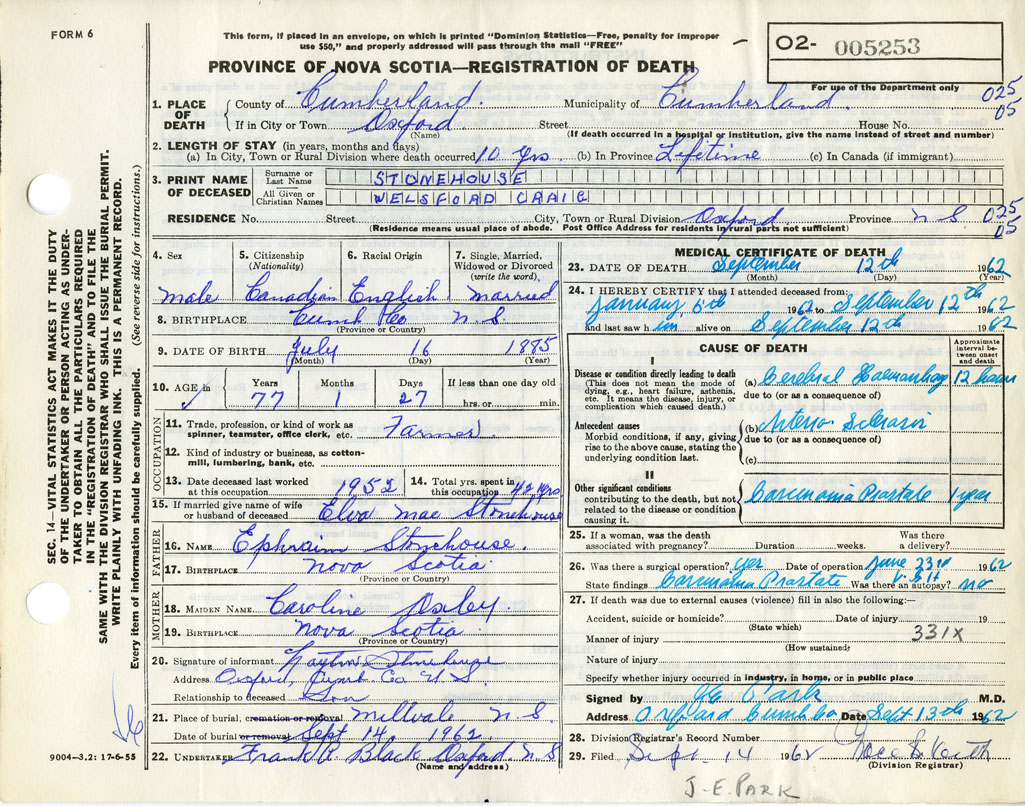 FORM 6
This form, if placed in an envelope, on which is printed "Dominion Statistics—Free, penalty for improper
use $50," and properly addressed will pass through the mail "FREE"
O2- 005253
For use of the Department only
PROVINCE OF NOVA SCOTIA—REGISTRATION OF DEATH
1. PLACE OF DEATH
County of Cumberland. Municipality of Cumberland. 025
If in City or Town Oxford Street House No. 05
(Name) (If death occurred in a hospital or institution, give the name instead of street and number)
2. LENGTH OF STAY (in years, months and days)
(a) In City, Town or Rural Division where death occurred 10 yrs. (b) In Province Lifetime (c) In Canada (if immigrant)
3. PRINT NAME OF DECEASED
Surname or Last Name STONEHOUSE
All Given or Christian Names WELSFORD CRAIG
RESIDENCE No. Street City, Town or Rural Division Oxford Province N S 025
05
(Residence means usual place of abode. Post Office Address for residents in rural parts not sufficient)
4. Sex 5. Citizenship (Nationality) 6. Racial Origin 7. Single, Married, Widowed or Divorced (write the word).
Male Canadian English Married
8. BIRTHPLACE Cumb Co N.S
(Province or Country)
9. DATE OF BIRTH July 16 1885
(Month) (Day) (Year)
10. AGE in Years Months Days If less than one day old
77 1 27 hrs. or min.
OCCUPATION
11. Trade, profession, or kind of work as
spinner, teamster, office clerk, etc. Farmer
12. Kind of industry or business, as cotton-
mill, lumbering, bank, etc.
13. Date deceased last worked at this occupation 1952 14. Total yrs. spent in this occupation 42 yrs
15. If married give name of wife
or husband of deceased Elva Mae Stonehouse
FATHER
16. NAME Ephraim Stonehouse.
17. BIRTHPLACE Nova Scotia
(Province or Country)
MOTHER
18. MAIDEN NAME Caroline Oxley
19. BIRTHPLACE Nova Scotia
(Province or Country)
20. Signature of informant Stonehouse
Address Oxford, Cumb. Co N.S.
Relationship to deceased Son
21. Place of burial, cremation or removal Millvale N S
Date of burial or removal Sept 14, 1962
22. UNDERTAKER Frank R. Black Oxford N S
(Name and address)
MEDICAL CERTIFICATE OF DEATH
23. DATE OF DEATH September 12th 1962
(Month) (Day) (Year)
24. I HEREBY CERTIFY that I attended deceased from:
January 5th 1962 to September 12th 1962
and last saw him alive on September 12th 1962
CAUSE OF DEATH
Approximate interval between onset and death
I
Disease or condition directly leading to death
(This does not mean the mode of
dying, e.g., heart failure, asthenia,
etc. It means the disease, injury, or
complication which caused death.)
(a) Cerebral Haemorrhage 12 hours
due to (or as a consequence of)
Antecedent causes
Morbid conditions, if any, giving
rise to the above cause, stating the
underlying condition last.
(b) Arterio Sclerosis
due to (or as a consequence of)
(c)
II
Other significant conditions
contributing to the death, but not
related to the disease or condition
causing it.
Carcinoma Prostate 1 year
25. If a woman, was the death
associated with pregnancy? Duration weeks. Was there a delivery?
26. Was there a surgical operation? yes Date of operation June 23rd 1962
State findings Carcinoma Prostate Was there an autopsy? no
27. If death was due to external causes (violence) fill in also the following:—
Accident, suicide or homicide? Date of injury 19
(State which)
331X
Manner of injury
(How sustained)
Nature of injury
Specify whether injury occurred in industry, in home, or in public place
Signed by J E Park M.D.
Address Oxford Cumb Co Date Sept 13th 1962
28. Division Registrar's Record Number
29. Filed Sept. 14 1962
(Division Registrar)
J-E. PARK
SEC. 14—VITAL STATISTICS ACT MAKES IT THE DUTY
OF THE UNDERTAKER OR PERSON ACTING AS UNDER-
TAKER TO OBTAIN ALL THE PARTICULARS REQUIRED
IN THE "REGISTRATION OF DEATH" AND TO FILE THE
SAME WITH THE DIVISION REGISTRAR WHO SHALL ISSUE THE BURIAL PERMIT.
WRITE PLAINLY WITH UNFADING INK. THIS IS A PERMANENT RECORD.
Every item of information should be carefully supplied. (See reverse side for instructions.)
9004—3.2: 17-6-55